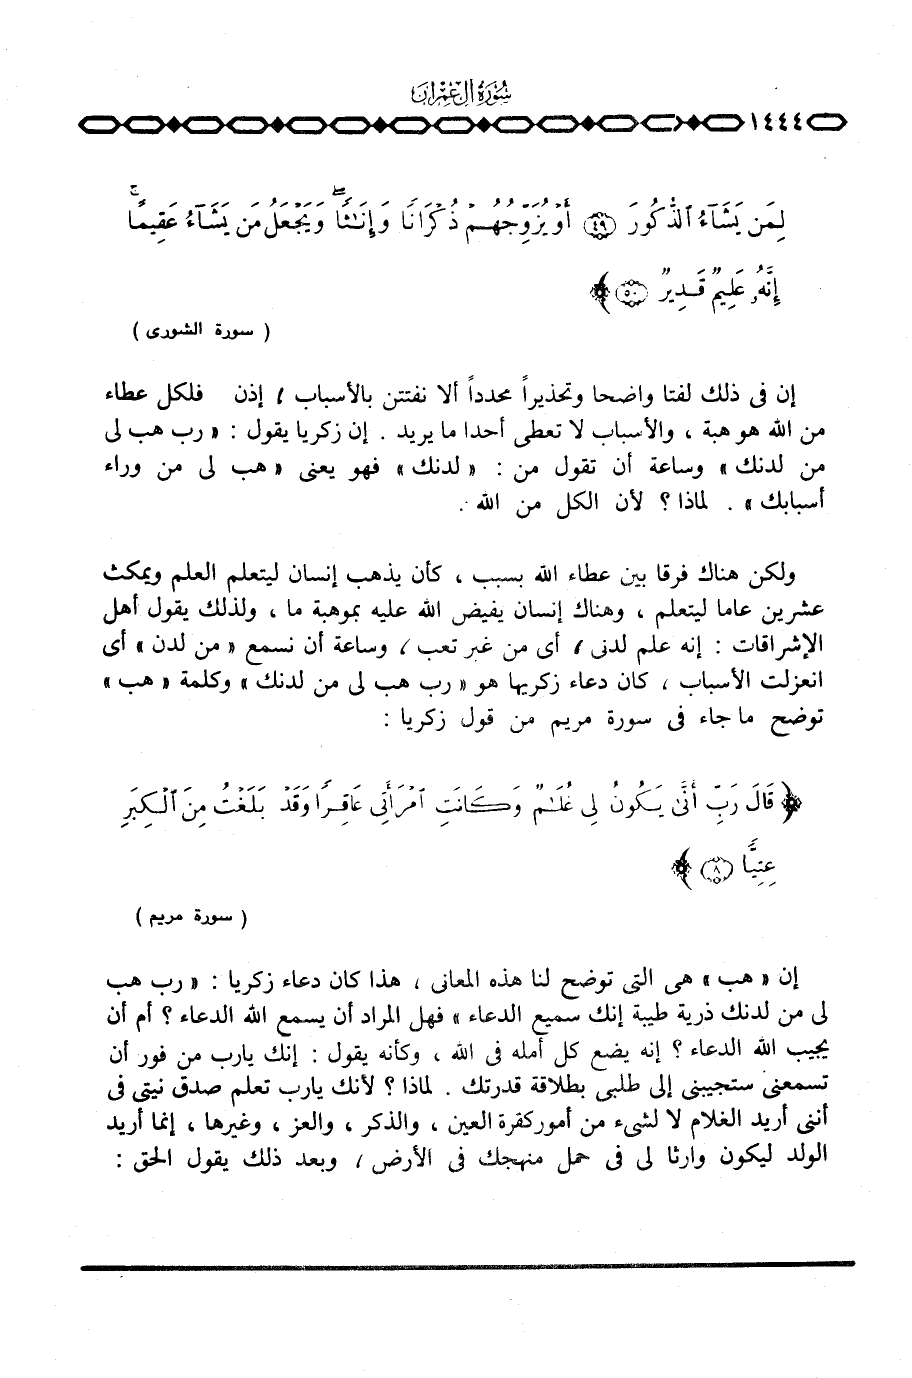 سُورَةُ آلِ عِمْرَانَ
١٤٤٤
لِمَن يَشَآءُ ٱلذُّكُورَ ﴿٤٩﴾ أَوْ يُزَوِّجُهُمْ ذُكْرَانًا وَإِنَٰثًا ۖ وَيَجْعَلُ مَن يَشَآءُ عَقِيمًا ۚ
إِنَّهُۥ عَلِيمٌ قَدِيرٌ ﴿٥٠﴾ ﴾
( سورة الشورى )
إن فى ذلك لفتا واضحا وتحذيراً محدداً ألا نفتتن بالأسباب ، إذن فلكل عطاء
من الله هو هبة ، والأسباب لا تعطى أحدا ما يريد . إن زكريا يقول : « رب هب لى
من لدنك » وساعة أن تقول من : « لدنك » فهو يعنى « هب لى من وراء
أسبابك » . لماذا ؟ لأن الكل من الله .
ولكن هناك فرقا بين عطاء الله بسبب ، كأن يذهب إنسان ليتعلم العلم ويمكث
عشرين عاما ليتعلم ، وهناك إنسان يفيض الله عليه بموهبة ما ، ولذلك يقول أهل
الإشراقات : إنه علم لدنى ، أى من غير تعب ، وساعة أن نسمع « من لدن » أى
انعزلت الأسباب ، كان دعاء زكريا هو « رب هب لى من لدنك » وكلمة « هب »
توضح ما جاء فى سورة مريم من قول زكريا :
﴿ قَالَ رَبِّ أَنَّىٰ يَكُونُ لِي غُلَٰمٌ وَكَانَتِ ٱمْرَأَتِي عَاقِرًا وَقَدْ بَلَغْتُ مِنَ ٱلْكِبَرِ
عِتِيًّا ﴿٨﴾ ﴾
( سورة مريم )
إن « هب » هى التى توضح لنا هذه المعانى ، هذا كان دعاء زكريا : « رب هب
لى من لدنك ذرية طيبة إنك سميع الدعاء » فهل المراد أن يسمع الله الدعاء ؟ أم أن
يجيب الله الدعاء ؟ إنه يضع كل أمله فى الله ، وكأنه يقول : إنك يارب من فور أن
تسمعنى ستجيبنى إلى طلبى بطلاقة قدرتك . لماذا ؟ لأنك يارب تعلم صدق نيتى فى
أننى أريد الغلام لا لشىء من أمور كقرة العين ، والذكر ، والعز ، وغيرها ، إنما أريد
الولد ليكون وارثا لى فى حمل منهجك فى الأرض ، وبعد ذلك يقول الحق :